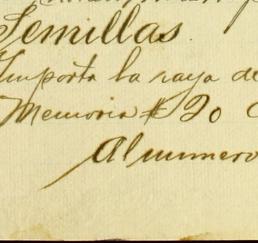 Semillas.
Importa la raya de
Memoria $ 20
Al numero